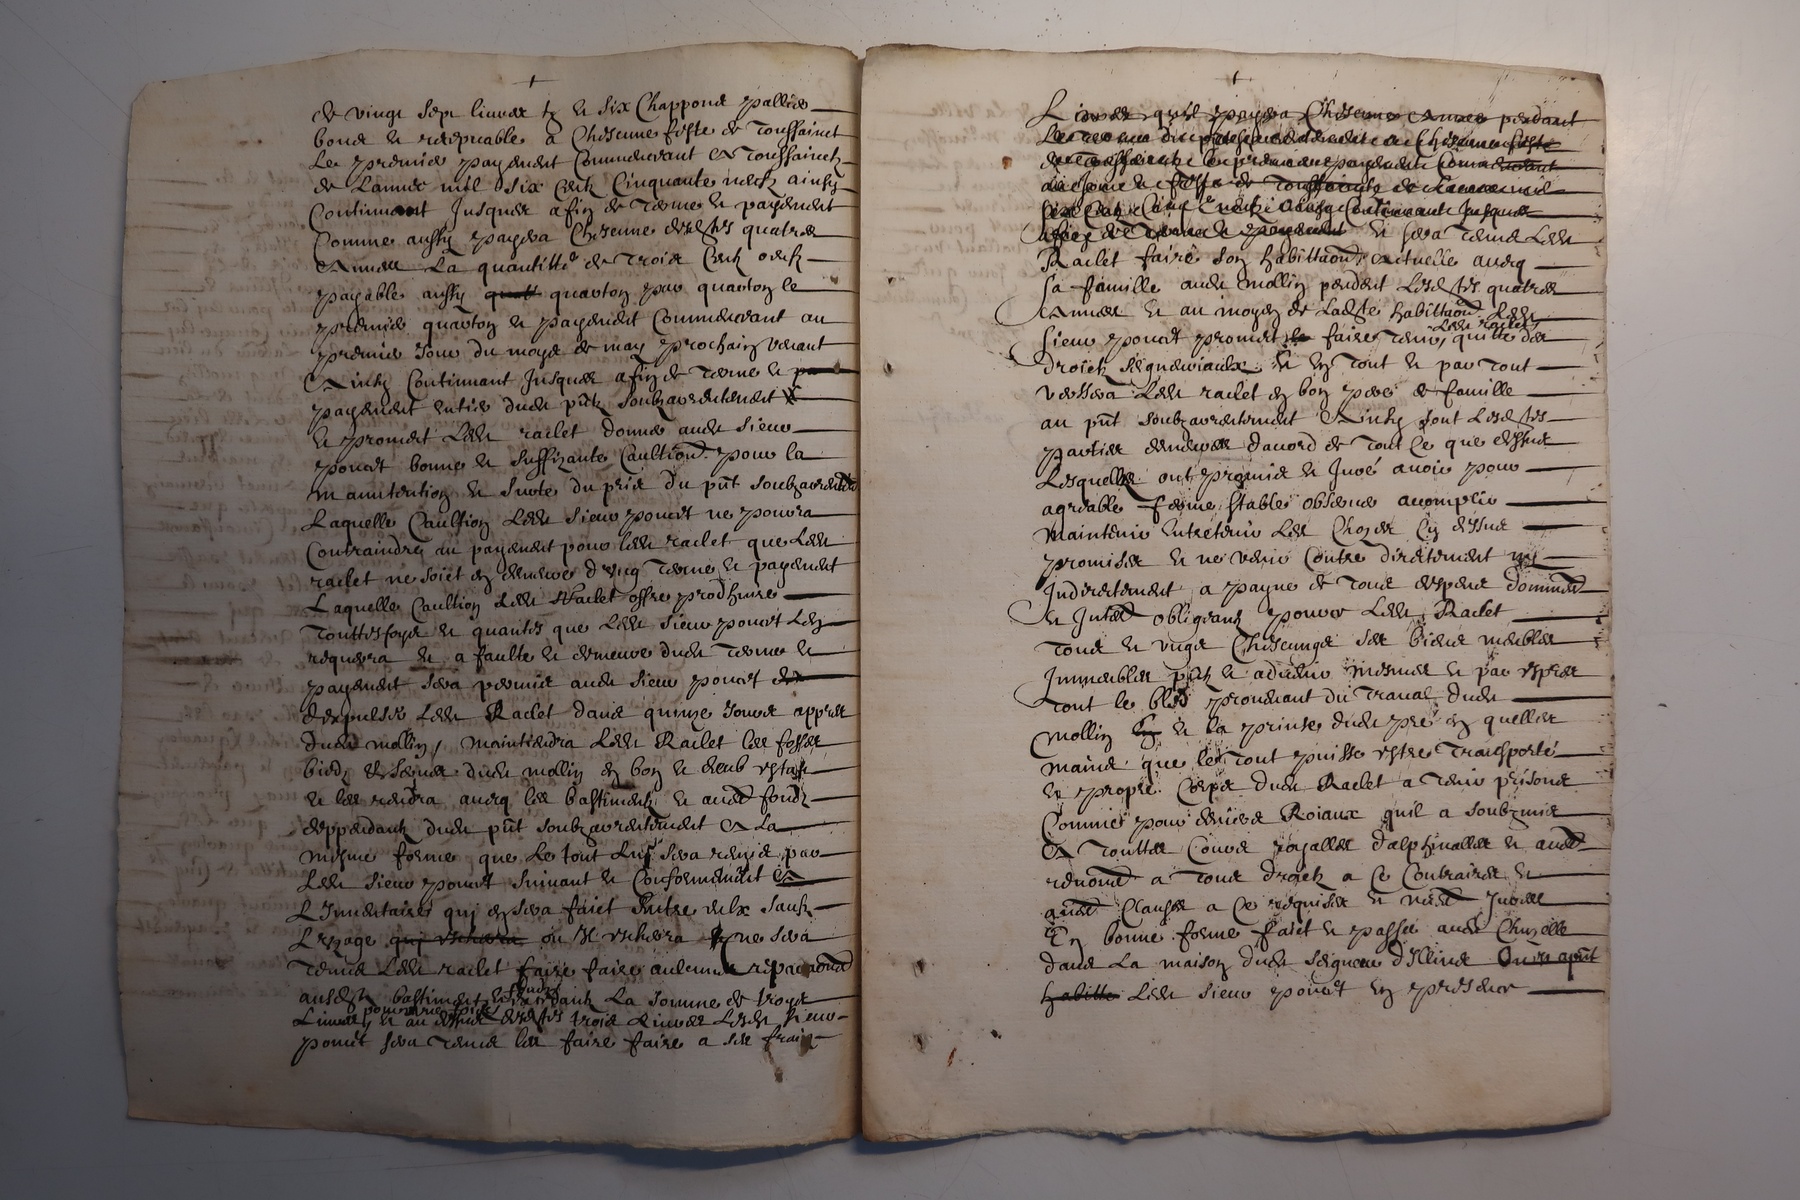 de vingt sept livres tz et six Chappons pallies
bons et recepvable a Chescune feste de Toussainct
Le premier payement Commencant a Toussainctz
de Lannee mil six Centz Cinquante neufz ainsy
Continuant Jusques a fin de terme et payement
Comme aussy payera Chescune desdites quatres
Annees La quantitté de Trois Centz oeufz
payable aussy quart quarton par quarton le
premier quarton et payement Commencant au
premier Jour du moys de may prochain venant
Ainsy Continuant Jusques a fin de terme et pa
payement entier dudit pnt soubzarrentement
et promet Ledit raclet donner audit sieur
poncet bonne et suffizante Caultion pour la
manutention et suite du pris du pnt soubzarrentement
Laquelle Caultion Ledit sieur poncet ne pourra
Contraindre au payement pour ledit raclet que Ledit
raclet ne soiet en demeure d'ung terme et payement
Laquelle Caultion Ledit Raclet offre prodhuire
Touttesfoys et quantes que Ledit sieur poncet Len
requerra et a faulte et demeure dudit terme et
payement sera permis audit sieur poncet de
dexpulser Ledit Raclet dans quinze Jours appres
dudit mollin, Maintiendra Ledit Raclet les fosses
biedz escluses dudit mollin en bon et deub estast
et les rendra avecq les bastimentz et autres fondz
deppendantz dudit pnt soubzarrentement a La
mesme forme que Le tout Luy sera remis par
Ledit sieur poncet suivant et Conformement a
LInventaire qui en sera faict Entre eulx sauf
Lesgage qui escherra ou Il escherra ne sera
Tenus Ledit raclet faire faire aulcunes reparations
ausdictz bastiment excedantz La somme de troys
Livres pour une pies et au dessus desdites trois Livres Ledit sieur
poncet sera tenus les faire faire a ses frais
Livres quil payera Chescune Annee pendant
Le terme du present
de Toussainctz Le premier payement Commencant
a Chescune feste de Toussaingtz de Lannee mil
six Centz Cinqte neufz Ainsy Continuant Jusques
a fin de Terme et payement et sera tenus Ledit
Raclet faire son habittaon actuelle avecq
sa famille audit Mollin pendent Lesdites quatres
Annees et au moyen de Ladite habittaon Ledit
sieur poncet promet le faire tenir Ledit raclet quitte des
droictz seigneuriaulx et en tout et par tout
versera Ledit raclet en bon pere de famille
au pnt soubzarrentement Ainsy sont Lesdites
parties demeures dacord de Tout Ce que dessus
Lesquelles ont promis et Juré avoir pour
agreable ferme stable observer acomplir
Maintenir Entretenir Les Choses Cy dessus
promises et ne venir Contre directement ny
Indirectement a payne de tous despens dommaes
et Intaes obligeantz pour ce Ledit Raclet
tous et ungs Chescungs ses biens meubles
Immeubles pntz et advenir Mesmes et par expres
tout le bled provenant du Travail dudit
mollin et la prinse dudit pre en quelles
mains que le tout puisse estre Transporté
et propre Corps dudit Raclet a tenir prisons
Comme pour deniers Roiaux quil a soubzmis
A Touttes Cours royalles dalphinalles et autres
renonct a tous droictz a Ce Contraires et
autres Clauses a Ce requises et necess Jurees
En bonne forme faict et passe audit Chuzelle
dans La maison dudit seigneur dIllins Ou de apnt
habitte Ledit sieur poncet En presence